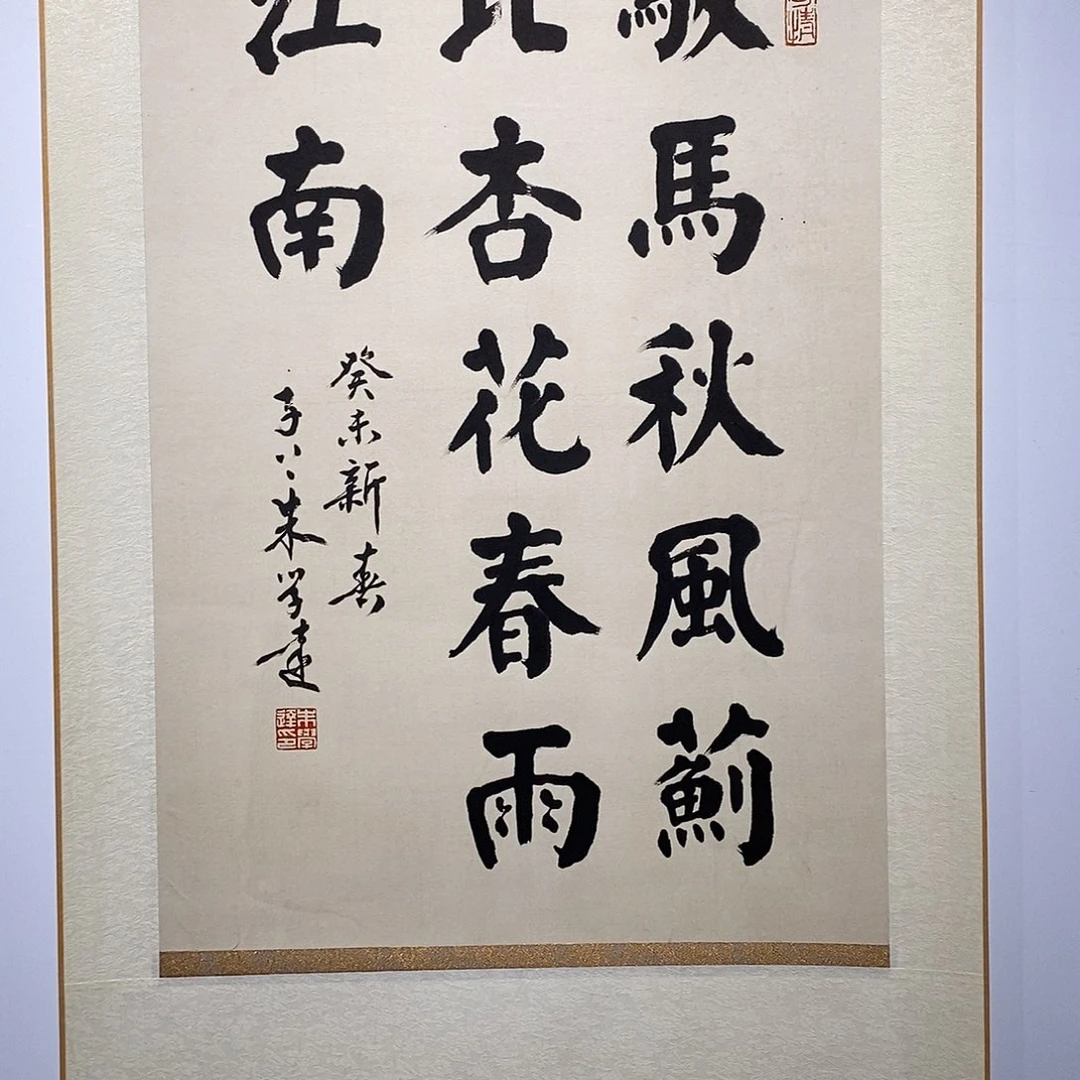 駿馬秋風薊
北杏花春雨
江南
癸未新春
朱学達
朱學達印